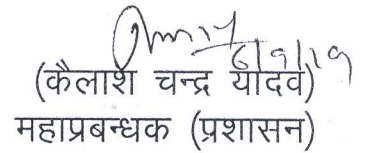 6/9/19
(कैलाश चन्द्र यादव)
महाप्रबन्धक (प्रशासन)